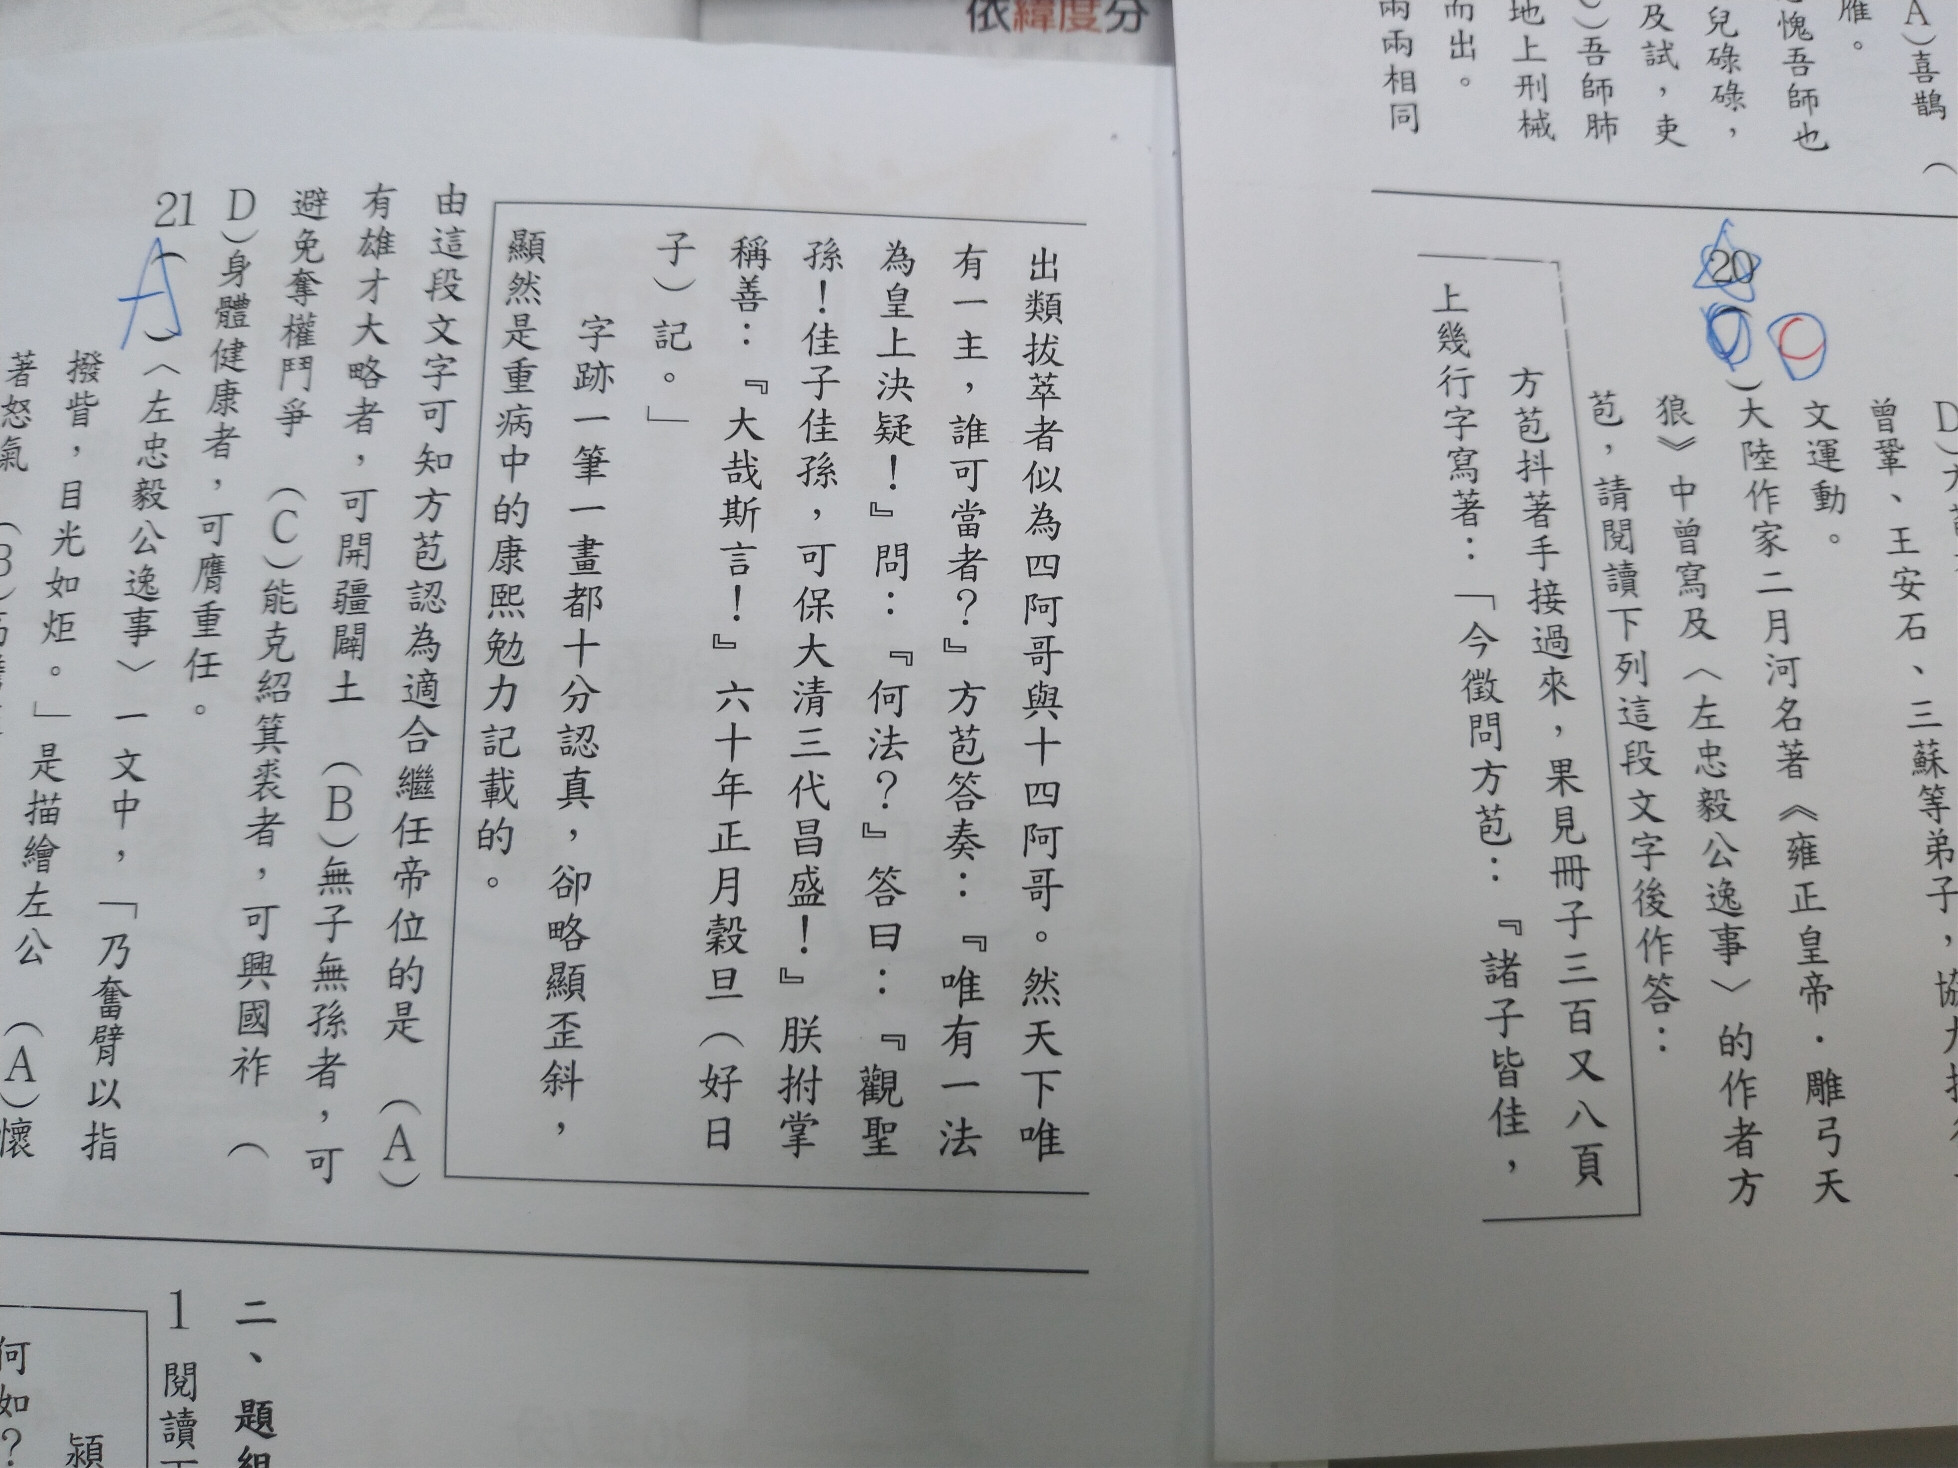 依緯度分
A）喜鵲　（
雁。
愧吾師也
兒碌碌，
及試，吏
）吾師肺
地上刑械
而出。
兩兩相同
曾鞏、王安石、三蘇等弟子，協
文運動。
20（　）大陸作家二月河名著《雍正皇帝．雕弓天
狼》中曾寫及〈左忠毅公逸事〉的作者方
苞，請閱讀下列這段文字後作答：
方苞抖著手接過來，果見冊子三百又八頁
上幾行字寫著：「今徵問方苞：『諸子皆佳，
出類拔萃者似為四阿哥與十四阿哥。然天下唯
有一主，誰可當者？』方苞答奏：『唯有一法
為皇上決疑！』問：『何法？』答曰：『觀聖
孫！佳子佳孫，可保大清三代昌盛！』朕拊掌
稱善：『大哉斯言！』六十年正月穀旦（好日
子）記。」
字跡一筆一畫都十分認真，卻略顯歪斜，
顯然是重病中的康熙勉力記載的。
由這段文字可知方苞認為適合繼任帝位的是　（A）
有雄才大略者，可開疆闢土　（B）無子無孫者，可
避免奪權鬥爭　（C）能克紹箕裘者，可興國祚　（
D）身體健康者，可膺重任。
21（A）〈左忠毅公逸事〉一文中，「乃奮臂以指
撥眥，目光如炬。」是描繪左公　（A）懷
著怒氣
二、題組
1閱讀
何如？